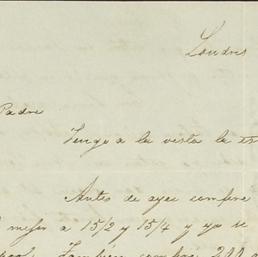 Londres
Padre
Tengo a la vista la es
Antes de ayer compré
mejor a 15/2 y 15/4 y yo se
pool. También compré 200